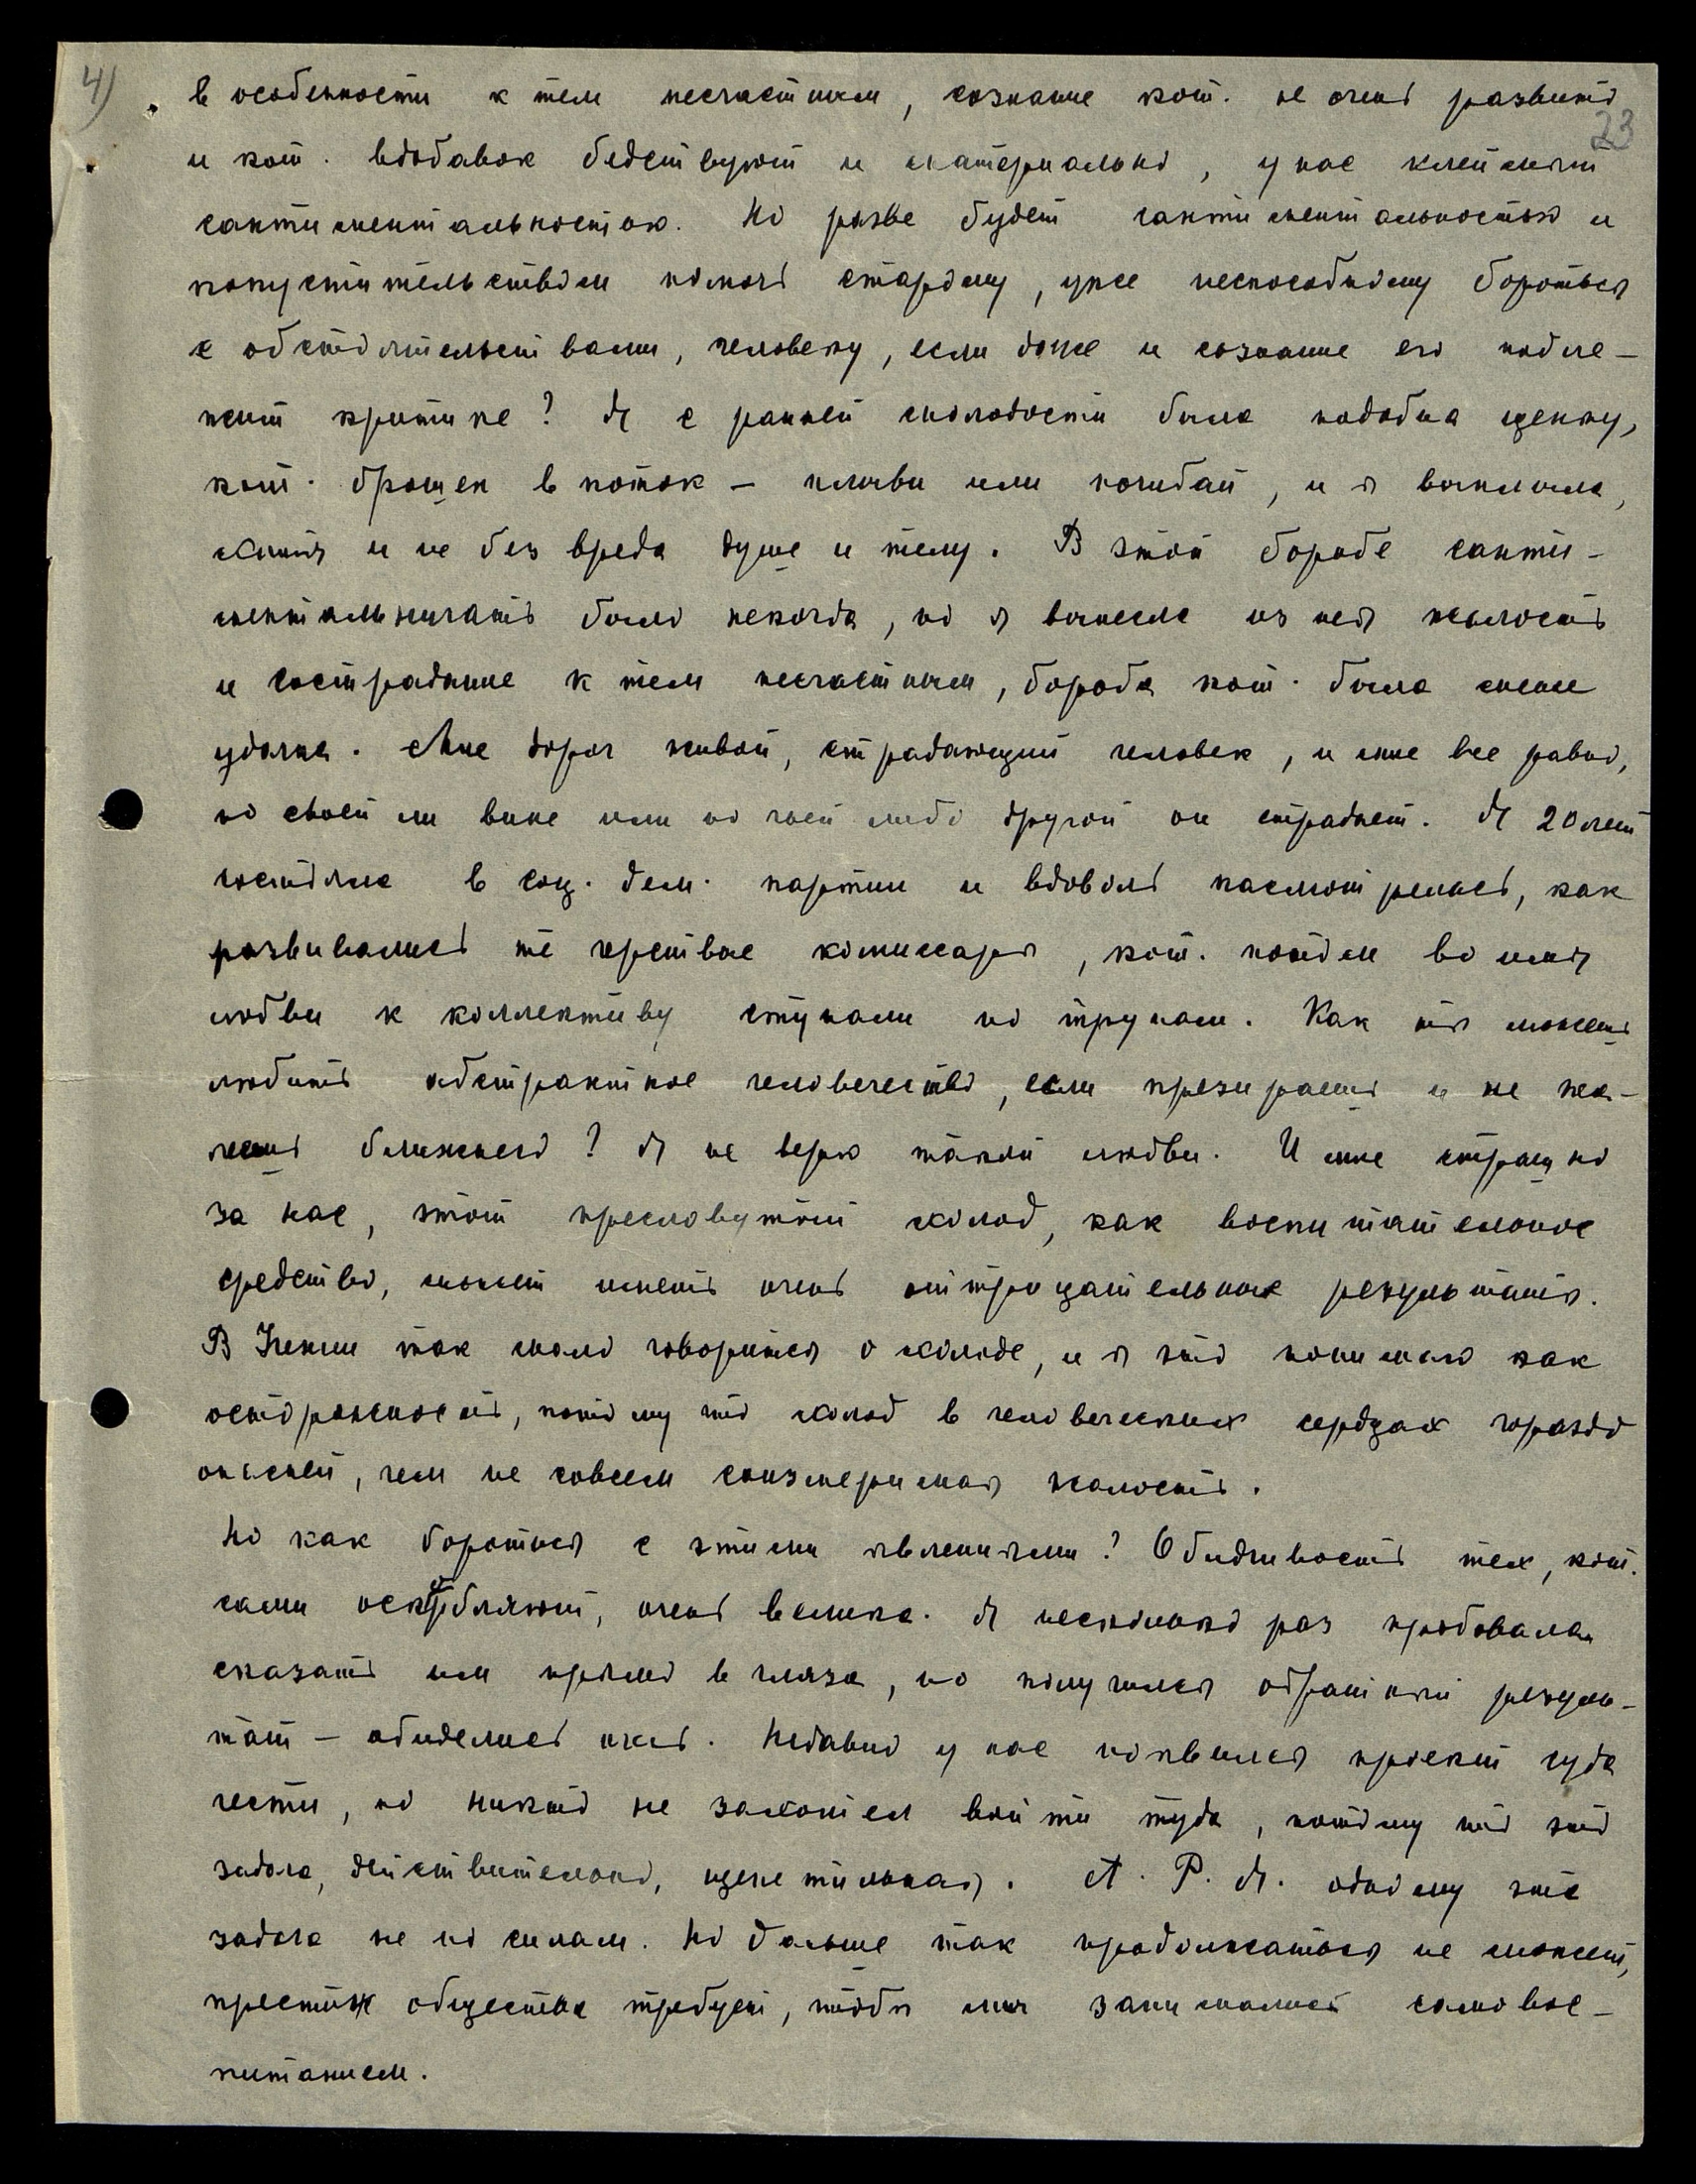 4)
23
в особенности к тем несчастным, сознание кот. не очень развито
и кот. вдобавок бедствуют и материально, у нас клеймят
сантиментальностью. Но разве будет сантиментальностью и
попустительством помочь старому, уже неспособному бороться
с обстоятельствами, человеку, если даже и сознание его подле-
жит критике? Я с ранней молодости была подобна щенку,
кот. брошен в поток – плыви или погибай, и я выплыла,
хотя и не без вреда душе и телу. В этой борьбе санти-
ментальничать было некогда, но я вынесла из нея жалость
и сострадание к тем несчастным, борьба кот. была менее
удачна. Мне дорог живой, страдающий человек, и мне все равно,
по своей ли вине или по чьей либо другой он страдает. Я 20 лет
состояла в соц. дем. партии и вдоволь насмотрелась, как
развивались те черствые комиссары, кот. потом во имя
любви к коллективу ступали по трупам. Как ты можешь
любить абстрактное человечество, если презираешь и не жа-
леешь ближнего? Я не верю такой любви. И мне страшно
за нас, этот пресловутый холод, как воспитательное
средство, может иметь очень отрицательные результаты.
В Учении так мало говорится о холоде, и я это понимаю как
осторожность, потому что холод в человеческих сердцах гораздо
опасней, чем не совсем соизмеримая жалость.
Но как бороться с этими явлениями? Обидчивость тех, кот.
сами оскорбляют, очень велика. Я несколько раз пробовала
сказать им прямо в глаза, но получился обратный резуль-
тат – обиделись они. Недавно у нас появился проект суда
чести, но никто не захотел войти туда, потому что это
задача, действительно, щепетильная. А. Р. Я. одному эта
задача не по силам. Но дальше так продолжаться не может,
престиж общества требует, чтобы мы занимались самовос-
питанием.